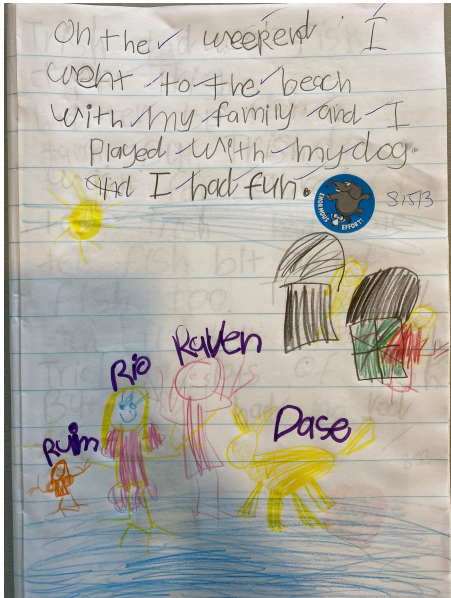 On the weekend I
went to the beach
with my family and I
Played with my dog.
and I had fun.
ENORMOUS EFFORT!
Raven
Rio
Dase
Ruim